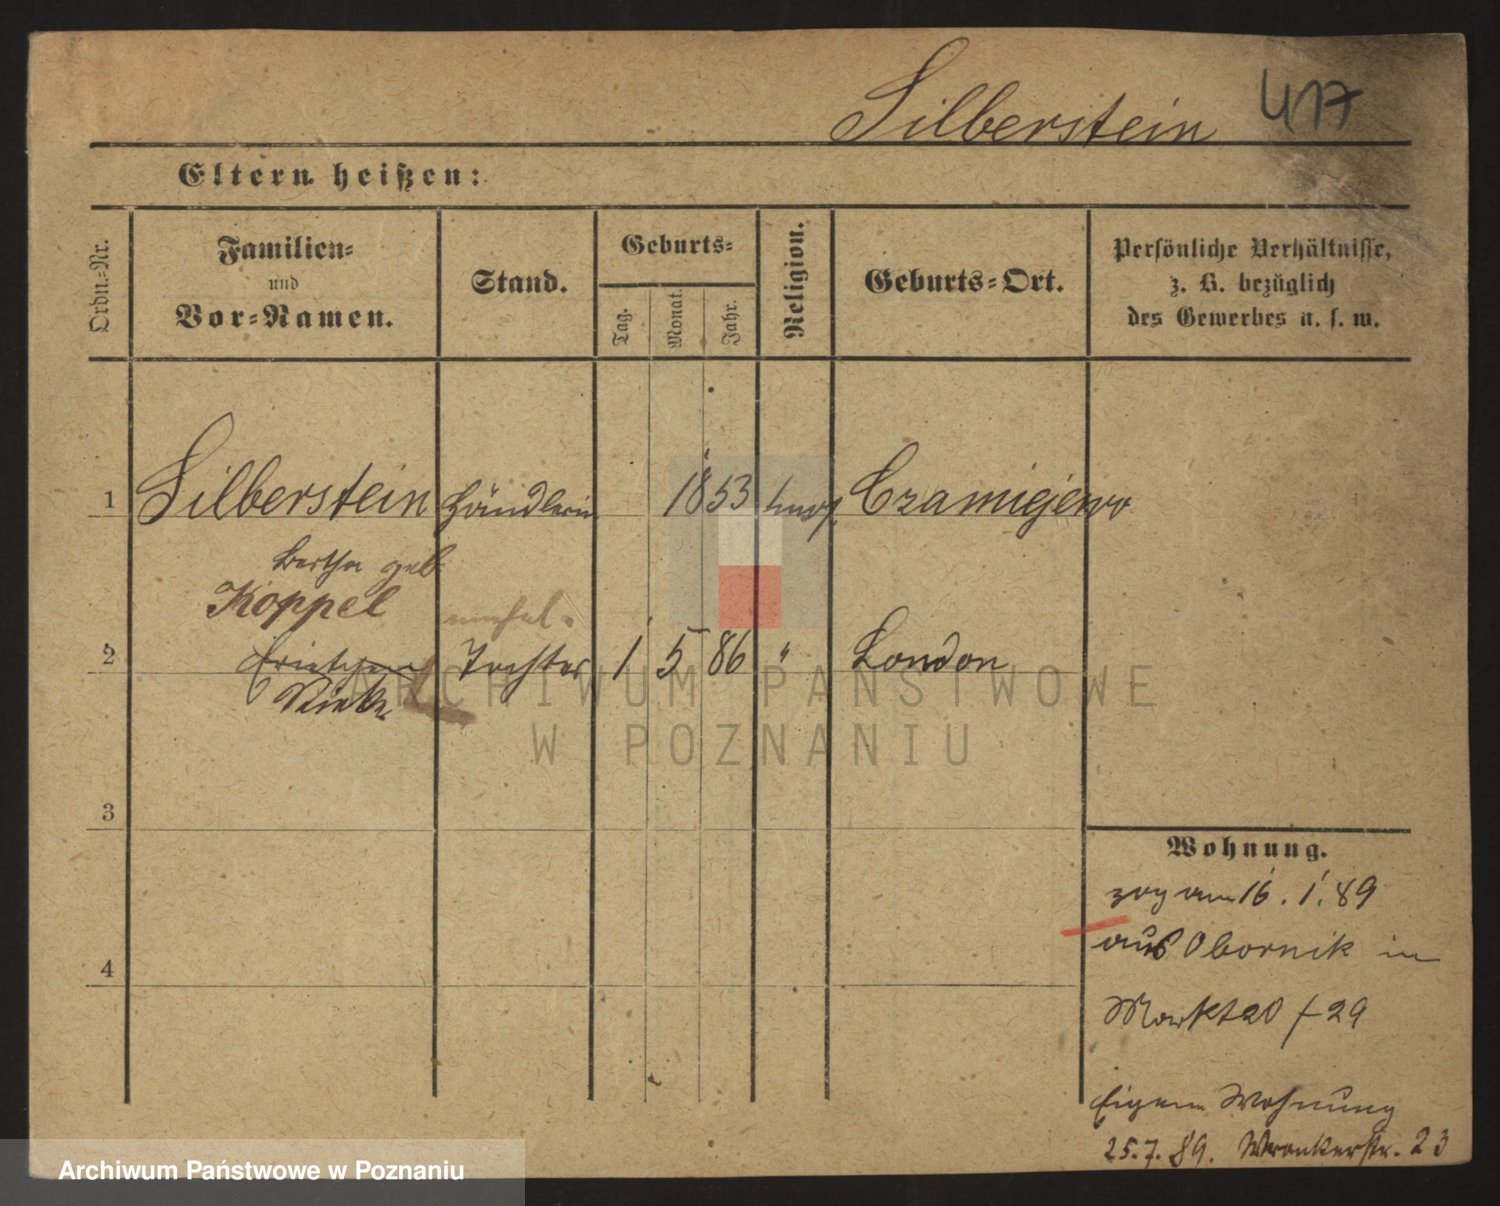 Silberstein 417
Eltern heißen:
Ordn.-Nr.
Familien-
und
Vor-Namen.
Stand.
Geburts-
Tag.
Monat.
Jahr.
Religion.
Geburts-Ort.
Persönliche Verhältnisse,
z. B. bezüglich
des Gewerbes u. s. w.
1 Silberstein Händlerin 1853 mos. Czarniejewo
Bertha geb.
Koppel
2 Tochter 1 5 86 " London
Rieke
3
4
Wohnung.
zog am 16. 1. 89
aus Obornik in
Markt 20 f 29
Eigene Wohnung
25. 7. 89. Wronkerstr. 23
ARCHIWUM PAŃSTWOWE
W POZNANIU
Archiwum Państwowe w Poznaniu